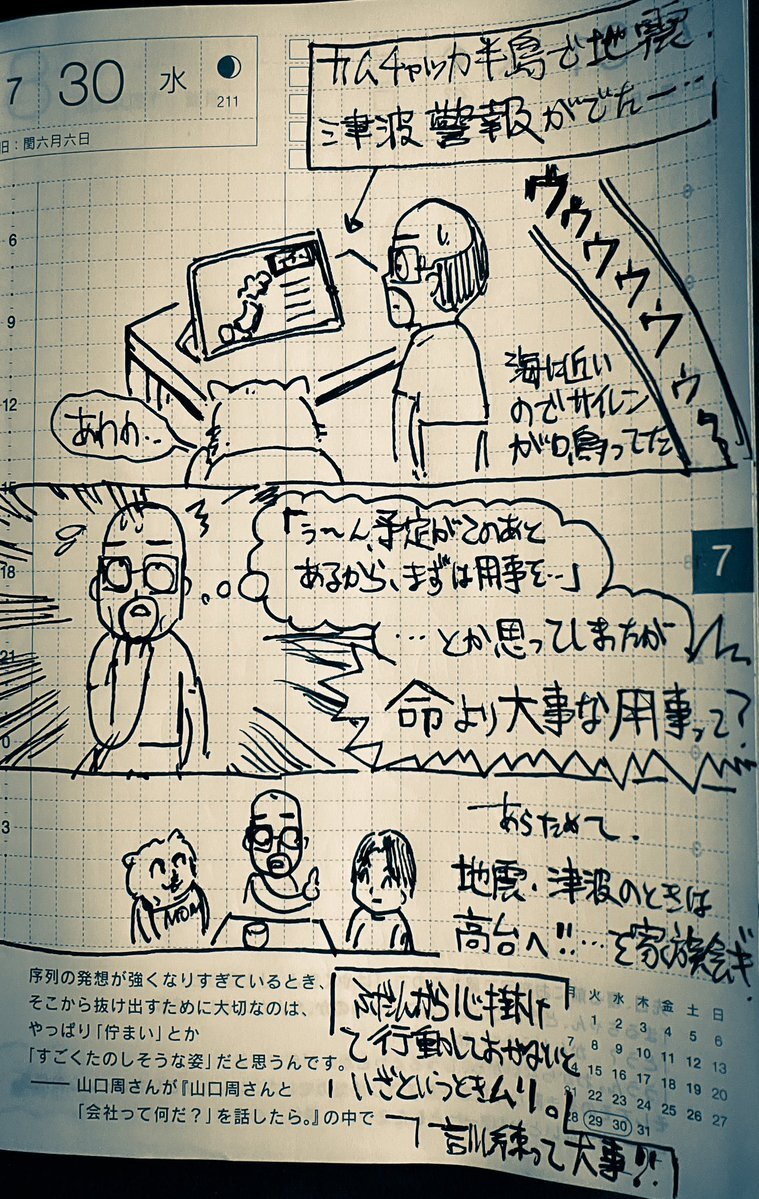 7 30 水
211
旧：閏六月六日
カムチャッカ半島で地震.
津波警報がでたー…
ヴゥウウウウゥ〜
6
9
12
15
18
21
0
3
海は近い
のでサイレン
が鳴ってた
あわわ…
「う〜ん、予定がこのあと
あるから、まずは用事を…」
…とか思ってしまたが
命より大事な用事って?
7
あらためて、
地震・津波のときは
高台へ!!…で家族会ギ
MOM
序列の発想が強くなりすぎているとき、
そこから抜け出すために大切なのは、
やっぱり「佇まい」とか
「すごくたのしそうな姿」だと思うんです。
―― 山口周さんが『山口周さんと
「会社って何だ？」を話したら。』の中で
ふだんから心掛け
て行動しておかないと
いざというときムリ。
訓練って大事!!
月 火 水 木 金 土 日
1 2 3 4 5 6
7 8 9 10 11 12 13
14 15 16 17 18 19 20
21 22 23 24 25 26 27
28 29 30 31